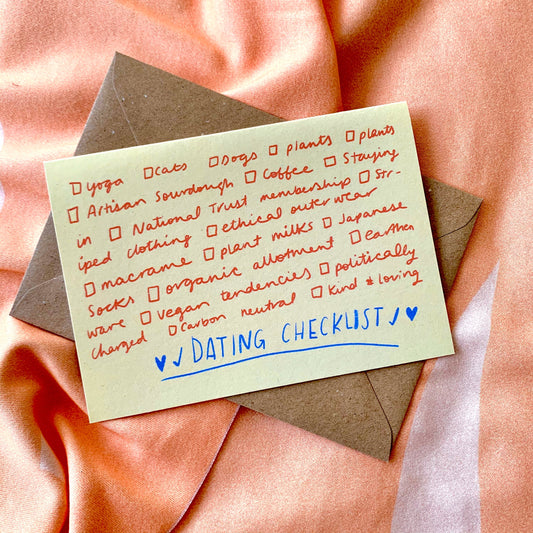 ☐ yoga ☐ cats ☐ Dogs ☐ plants ☐ plants
☐ Artisan Sourdough ☐ Coffee ☐ Staying
in ☐ National Trust membership ☐ Str-
iped clothing ☐ ethical outerwear
☐ macrame ☐ plant milks ☐ Japanese
Socks ☐ organic allotment ☐ earthen
ware ☐ vegan tendencies ☐ politically
charged ☐ Carbon neutral ☐ Kind & loving
♥ ✓ DATING CHECKLIST ✓ ♥